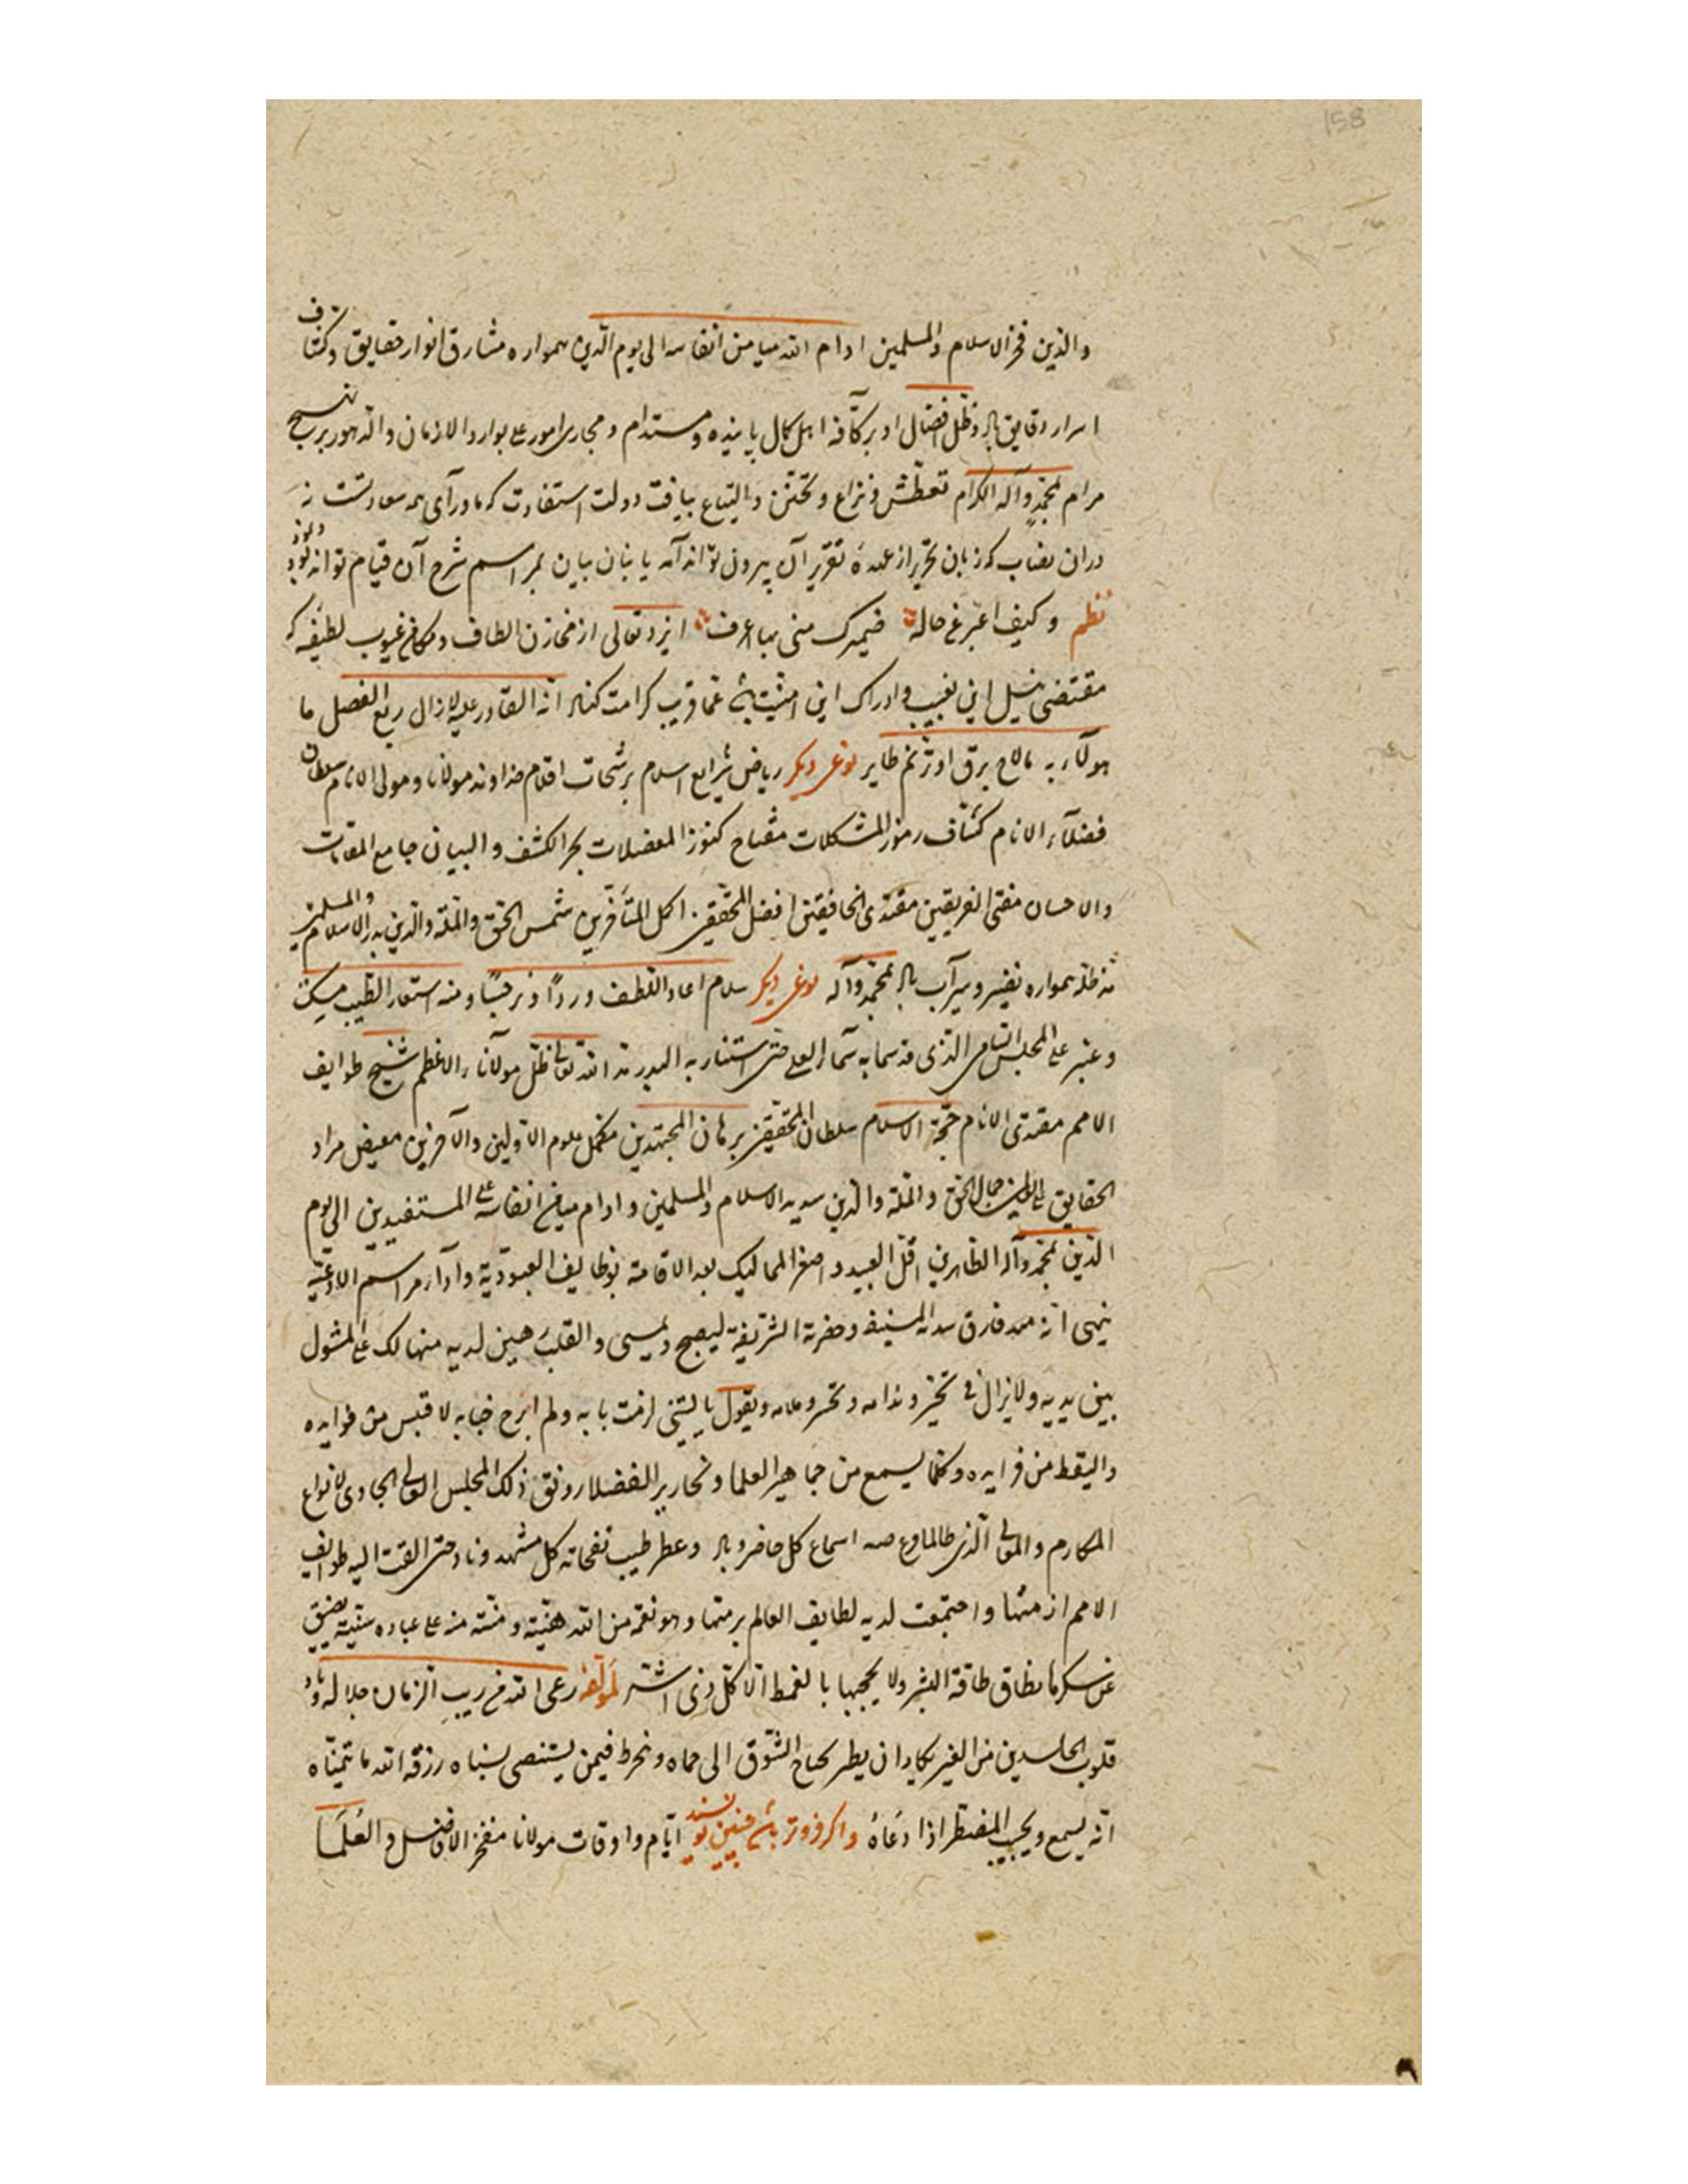 158
والدین فخر الاسلام والمسلمین ادام الله میامن انفاسه الی یوم الدین همواره مشارق انوار حقایق و کشاف
اسرار دقایق باد و ظل افضال او بر کافه اهل کمال پاینده و مستدام و مجاری امور علی بوارد الازمان والدهور بر نسج
مرام بمحمد وآله الکرام تعطش و نزاع و تحنن والتیاع بیافت دولت استفادت که ماورای همه سعادتست نه
دران نصاب که زبان تحریر از عهدهٔ تقریر آن بیرون تواند آمد یا بنان بیان بمراسم شرح آن قیام تواند نمود
نظم وکیف اعبر عن حاله ضمیرک منی بها اعرف ایزد تعالی از مخازن الطاف و مکامن غیوب لطیفه که
مقتضی نیل این نصیب و ادراک این امنیت باشد عما قریب کرامت کناد انه القادر علیه لازال ربع الفضل ما
هولاء به مالاح برق او ترنم طایر نوعی دیگر ریاض شرایع اسلام برشحات اقلام خداوند مولانا و مولی الانام سلطان
فضلاء الانام کشاف رموز المشکلات مفتاح کنوز المعضلات بحر الکشف والبیان جامع المقامات
والاحسان مفتی الفریقین مقتدی الخافقین افضل المحققین اکمل المتأخرین شمس الحق والملة والدین بدر الاسلام والمسلمین
مد ظله همواره نضیر و سیرآب باد بمحمد وآله نوعی دیگر سلام اعاد اللطف وردا و نرجسا ومنه استعار الطیب مسک
وعنبر علی المجلس السامی الذی قد سما به سماء العلی حتی استنار به البدر مد الله تعالی ظل مولانا الاعظم شیخ طوایف
الامم مقتدی الانام حجة الاسلام سلطان المحققین برهان المجتهدین مکمل علوم الاولین والآخرین مفیض مراد
الحقایق علی العالمین جمال الحق والملة والدین سدید الاسلام والمسلمین وادام میامن انفاسه علی المستفیدین الی یوم
الدین بمحمد وآله الطاهرین اقل العبید واصغر الممالیک بعد الاقامة بوظایف العبودیة وآداء مراسم الادعیة
ینهی انه مذ فارق سدته المنیفة وحضرته الشریفة لیصبح ویمسی والقلب رهین لدیه متهالک علی المثول
بین یدیه ولایزال فی تحیر وندامه وتحسر وملامه ویقول یالیتنی لزمت بابه ولم ابرح جنابه لاقتبس من فوایده
والتقط من فرایده وکلما یسمع من جماهیر العلما ونحاریر الفضلا رونق ذلک المجلس العالی الحاوی لانواع
المکارم والمعالی الذی طالما قرع صیته اسماع کل حاضر وباد وعطر طیب نفحاته کل مشهد وناد حتی القت الیه طوایف
الامم ازمتها واجتمعت لدیه لطایف العالم برمتها وهو نعمة من الله هنیئة ومنة منه علی عباده سنیة یضیق
عن شکرها نطاق طاقة البشر ولا یحجبها بالغمط الا کل ذی اشر لمولفه رعی الله من ریب الزمان جلاله
قلوب الحاسدین من الغیر یکاد ان یطیر بجناح الشوق الی حماه وینخرط فیمن یستضئ بسناه رزقه الله مایتمناه
انه یسمع ویجیب المضطر اذا دعاه واگر فروتر باشد چنین نویسند ایام و اوقات مولانا مفخر الافاضل والعلما